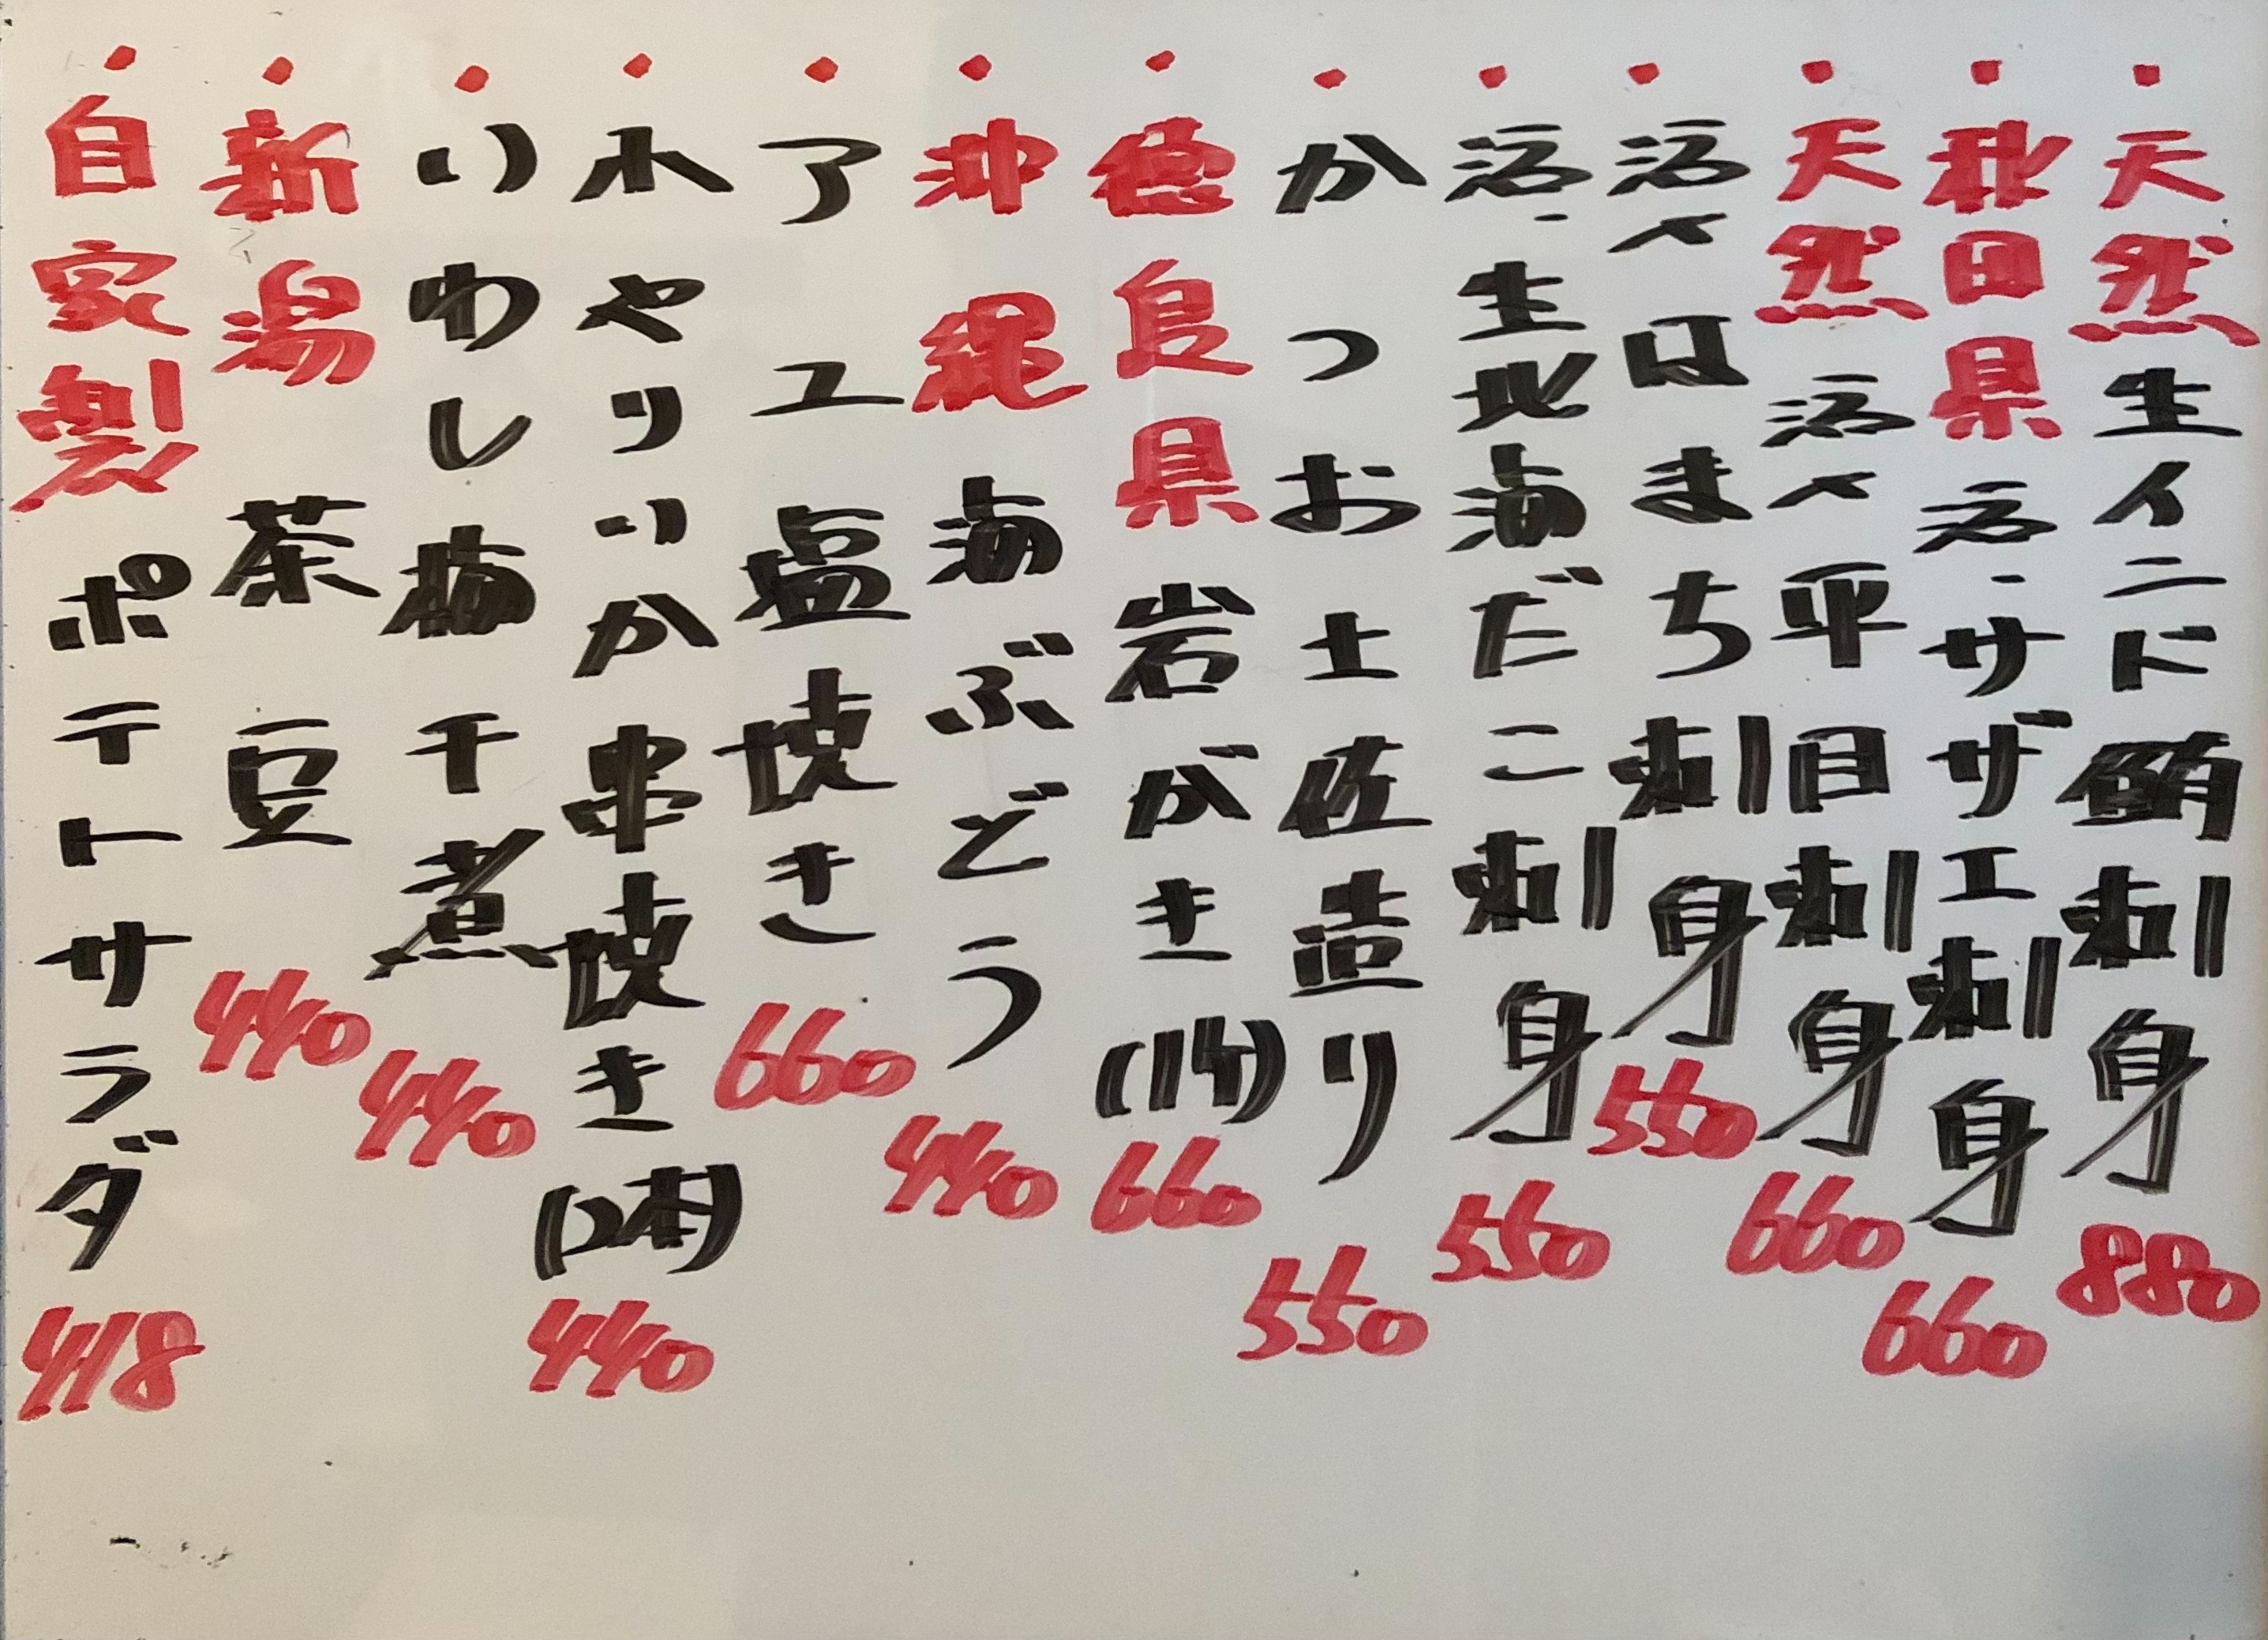 ・天然生インド鮪刺身 880
・秋田県活・サザエ刺身 660
・天然活〆平目刺身 660
・活〆はまち刺身 550
・活・生北海だこ刺身 550
・かつお土佐造り 550
・徳島県岩がき 660
・沖縄海ぶどう 440
・アユ塩焼き 660
・小やりいか串焼き(2本) 440
・いわし梅干煮 440
・新潟茶豆 440
・自家製ポテトサラダ 418